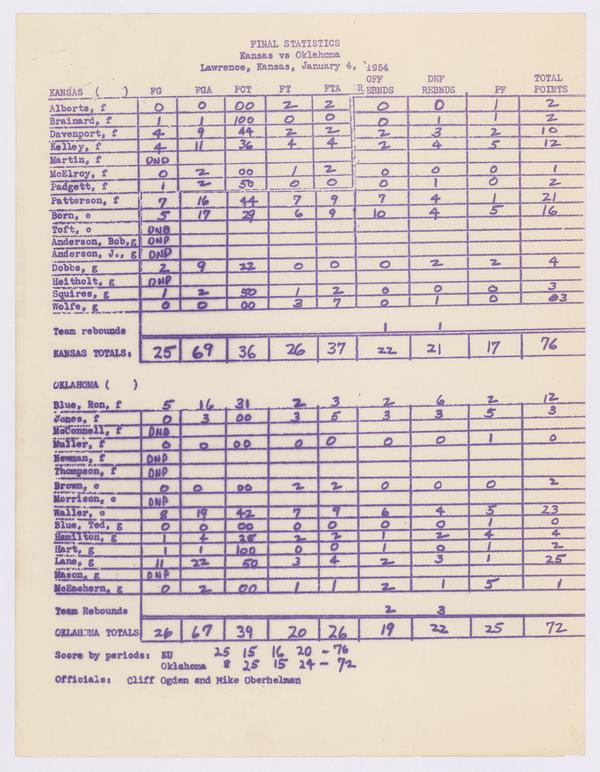 FINAL STATISTICS
Kansas vs Oklahoma
Lawrence, Kansas, January 4, 1954
OFF DEF TOTAL
KANSAS ( ) FG FGA PCT FT FTA REBNDS REBNDS PF POINTS
Alberts, f 0 0 00 2 2 0 0 1 2
Brainard, f 1 1 100 0 0 0 1 1 2
Davenport, f 4 9 44 2 2 2 3 2 10
Kelley, f 4 11 36 4 4 2 4 5 12
Martin, f DND
McElroy, f 0 2 00 1 2 0 0 0 1
Padgett, f 1 2 50 0 0 0 1 0 2
Patterson, f 7 16 44 7 9 7 4 1 21
Born, c 5 17 29 6 9 10 4 5 16
Toft, c DND
Anderson, Bob,g DNP
Anderson, J., g DNP
Dobbs, g 2 9 22 0 0 0 2 2 4
Heitholt, g DNP
Squires, g 1 2 50 1 2 0 0 0 3
Wolfe, g 0 0 00 3 7 0 1 0 3
Team rebounds 1 1
KANSAS TOTALS: 25 69 36 26 37 22 21 17 76
OKLAHOMA ( )
Blue, Ron, f 5 16 31 2 3 2 6 2 12
Jones, f 0 3 00 3 5 3 3 5 3
McConnell, f DND
Muller, f 0 0 00 0 0 0 0 1 0
Newman, f DND
Thompson, f DNP
Brown, c 0 0 00 2 2 0 0 0 2
Morrison, c DNP
Waller, c 8 19 42 7 9 6 4 5 23
Blue, Ted, g 0 0 00 0 0 0 0 1 0
Hamilton, g 1 4 25 2 2 1 2 4 4
Hart, g 1 1 100 0 0 1 0 1 2
Lane, g 11 22 50 3 4 2 3 1 25
Mason, g DNP
McEachern, g 0 2 00 1 1 2 1 5 1
Team Rebounds 2 3
OKLAHOMA TOTALS 26 67 39 20 26 19 22 25 72
Score by periods: KU 25 15 16 20 - 76
Oklahoma 8 25 15 24 - 72
Officials: Cliff Ogden and Mike Oberhelman